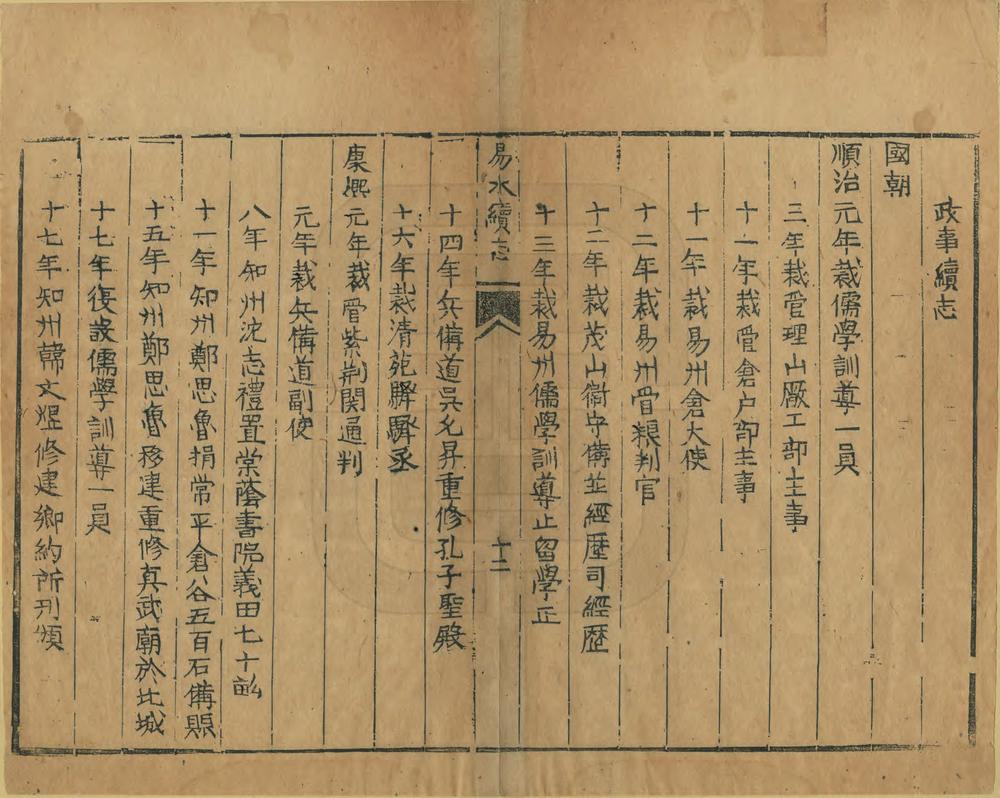 政事續志
國朝
順治元年裁儒學訓導一員
三年裁管理山廠工部主事
十一年裁管倉户部主事
十一年裁易州倉大使
十二年裁易州管粮判官
十二年裁茂山衛守備並經歷司經歷
十三年裁易州儒學訓導止留學正
易水續志
十二
十四年兵備道吳允昇重修孔子聖殿
十六年裁清苑驛驛丞
康熙元年裁管紫荆関通判
元年裁兵備道副使
八年知州沈志禮置棠蔭書院義田七十畆
十一年知州鄭思魯捐常平倉谷五百石備賑
十五年知州鄭思魯移建重修真武廟於北城
十七年復設儒學訓導一員
十七年知州韓文煜修建鄉約所刋頒